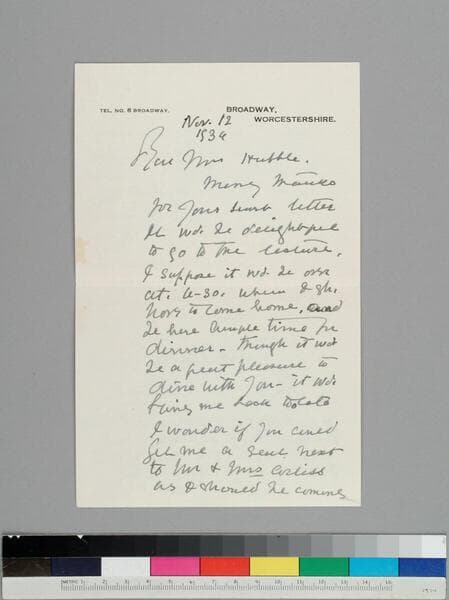 TEL. NO. 6 BROADWAY.
BROADWAY,
WORCESTERSHIRE.
Nov. 12
1934
Dear Mrs Hubble.
Many thanks
for your letter
It wd. be delightful
to go to the lecture.
I suppose it wd. be over
at. 6-30. when I sh.
have to come home, and
be here ample time for
dinner - though it wd
be a great pleasure to
dine with you - it wd.
bring me back too late
I wonder if you could
get me a seat next
to Mr & Mrs Corliss
as I should be coming